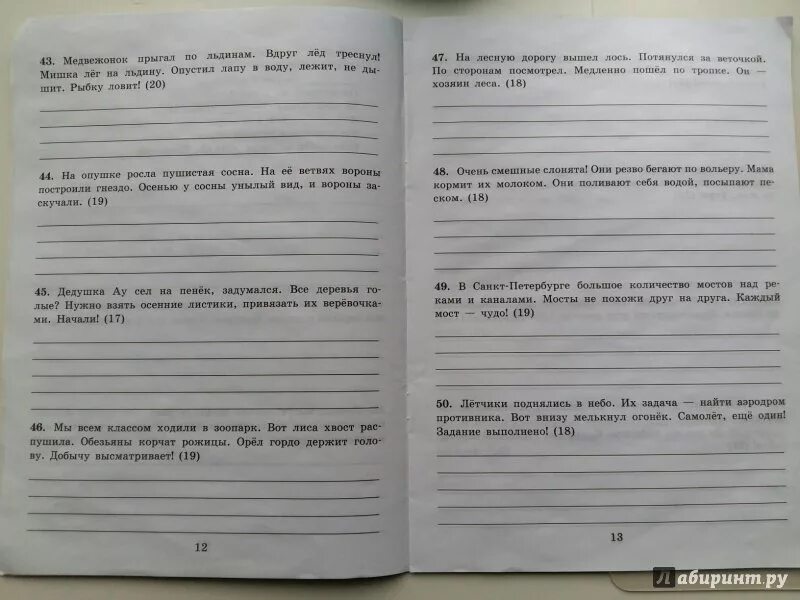 43. Медвежонок прыгал по льдинам. Вдруг лёд треснул!
Мишка лёг на льдину. Опустил лапу в воду, лежит, не ды-
шит. Рыбку ловит! (20)
44. На опушке росла пушистая сосна. На её ветвях вороны
построили гнездо. Осенью у сосны унылый вид, и вороны за-
скучали. (19)
45. Дедушка Ау сел на пенёк, задумался. Все деревья го-
лые? Нужно взять осенние листики, привязать их верёвочка-
ми. Начали! (17)
46. Мы всем классом ходили в зоопарк. Вот лиса хвост рас-
пушила. Обезьяны корчат рожицы. Орёл гордо держит голо-
ву. Добычу высматривает! (19)
12
47. На лесную дорогу вышел лось. Потянулся за веточкой.
По сторонам посмотрел. Медленно пошёл по тропке. Он —
хозяин леса. (18)
48. Очень смешные слонята! Они резво бегают по вольеру. Мама
кормит их молоком. Они поливают себя водой, посыпают пе-
ском. (18)
49. В Санкт-Петербурге большое количество мостов над ре-
ками и каналами. Мосты не похожи друг на друга. Каждый
мост — чудо! (19)
50. Лётчики поднялись в небо. Их задача — найти аэродром
противника. Вот внизу мелькнул огонёк. Самолёт, ещё один!
Задание выполнено! (18)
13
Лабиринт.ру